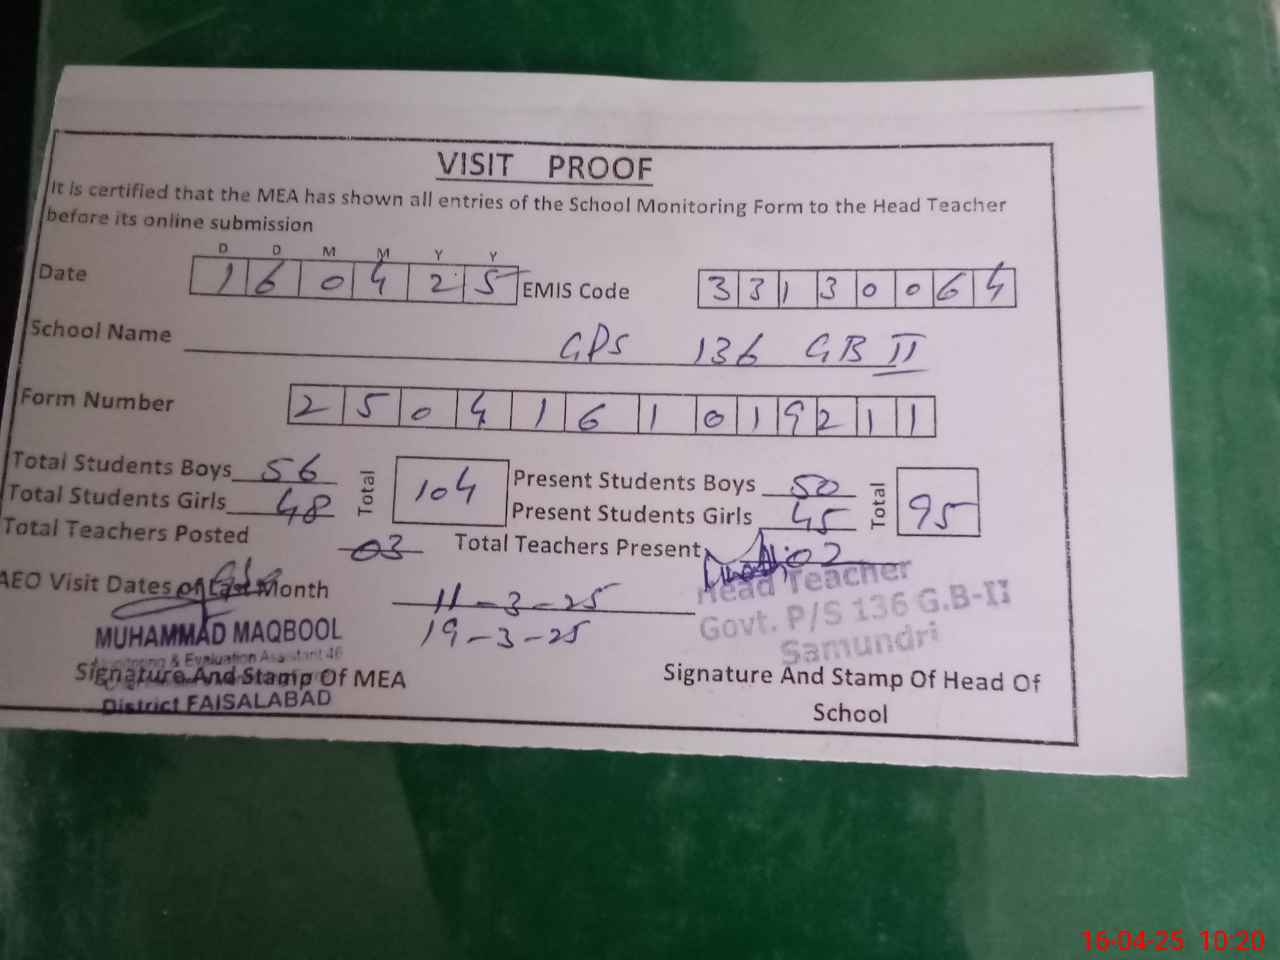 VISIT PROOF
It is certified that the MEA has shown all entries of the School Monitoring Form to the Head Teacher
before its online submission
D D M M Y Y
Date 16 04 25 EMIS Code 33130064
School Name GPS 136 GB II
Form Number 2504161019211
Total Students Boys 56 Total 104 Present Students Boys 50 Total 95
Total Students Girls 48 Present Students Girls 45
Total Teachers Posted 03 Total Teachers Present 02
AEO Visit Dates of Last Month 11-3-25
19-3-25
Head Teacher
Govt. P/S 136 G.B-II
Samundri
MUHAMMAD MAQBOOL
Monitoring & Evaluation Assistant 46
District FAISALABAD
Signature And Stamp Of MEA
Signature And Stamp Of Head Of
School
16-04-25 10:20